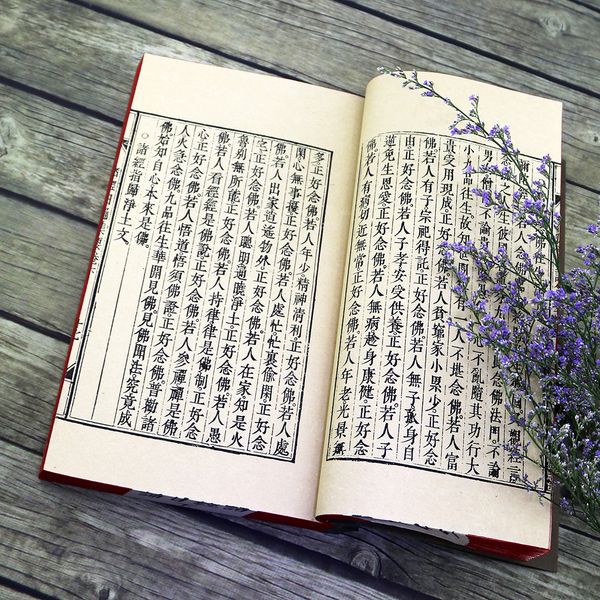 念佛法門不論
心不亂隨其功行大
小九品往生故知
有一人不堪念佛若人富
貴受用現成正好念佛若人貧窮家小累少正好念
佛若人有子宗祀得託正好念佛若人無子孤身自
由正好念佛若人子孝安受供養正好念佛若人子
逆免生恩愛正好念佛若人無病趁身康健正好念
佛若人有病切近無常正好念佛若人年老光景無
多正好念佛若人年少精神清利正好念佛若人處
閒心無事擾正好念佛若人處忙忙裏偷閒正好念
佛若人出家逍遙物外正好念佛若人在家知是火
宅正好念佛若人聰明通曉淨土正好念佛若人愚
魯別無所能正好念佛若人持律律是佛制正好念
佛若人看經經是佛說正好念佛若人參禪禪是佛
心正好念佛若人悟道悟須佛證正好念佛普勸諸
人火急念佛九品往生華開見佛見佛聞法究竟成
佛始知自心本來是佛
○諸經指歸淨土文